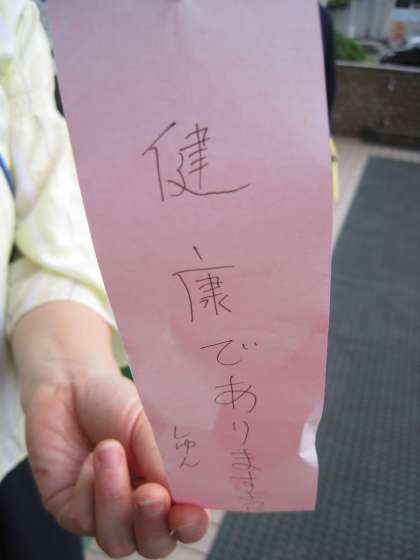 健康でありますように
しゅん